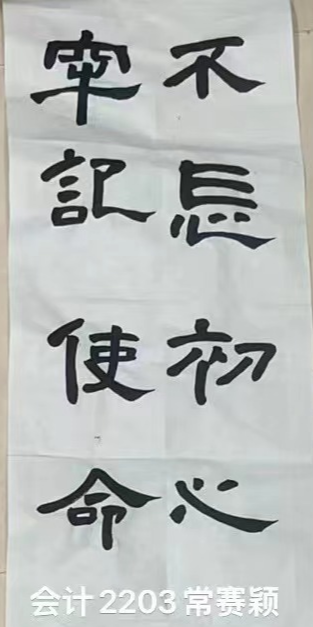 不忘初心
牢记使命
会计2203常赛颖